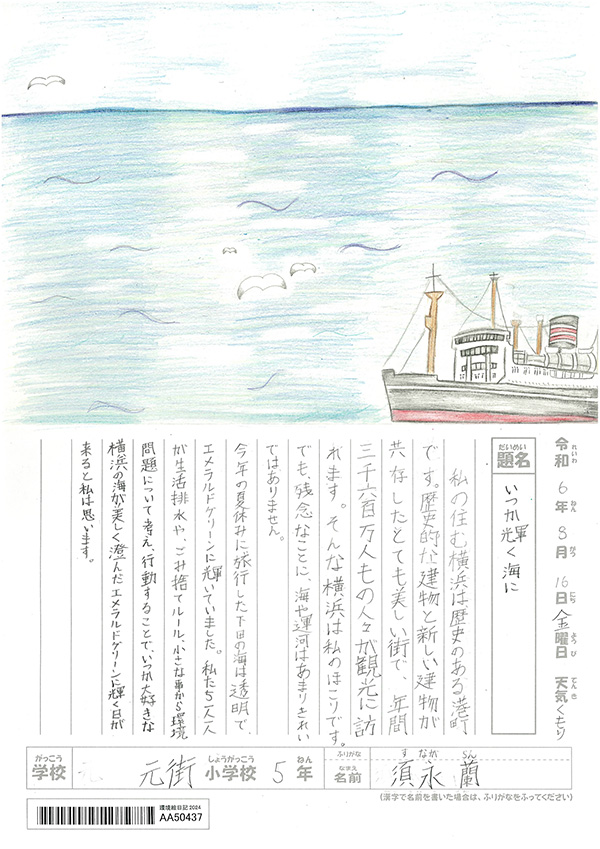 令和6年8月16日金曜日 天気くもり
れいわ ねん がつ にち ようび てんき
だいめい
題名 いつか輝く海に
私の住む横浜は歴史のある港町
です。歴史的な建物と新しい建物が
共存したとても美しい街で、年間
三千六百万人もの人々が観光に訪
れます。そんな横浜は私のほこりです。
でも、残念なことに、海や運河はあまりきれい
ではありません。
今年の夏休みに旅行した下田の海は透明で、
エメラルドグリーンに輝いていました。私たち一人一人
が生活排水や、ごみ捨てルール、小さな事から環境
問題について考え、行動することで、いつか大好きな
横浜の海が美しく澄んだエメラルドグリーンに輝く日が
来ると私は思います。
がっこう しょうがっこう ねん ふりがな す なが らん
学校 元街 小学校 5年 なまえ 名前 須永 蘭
(漢字で名前を書いた場合は、ふりがなをふってください)
環境絵日記2024
AA50437